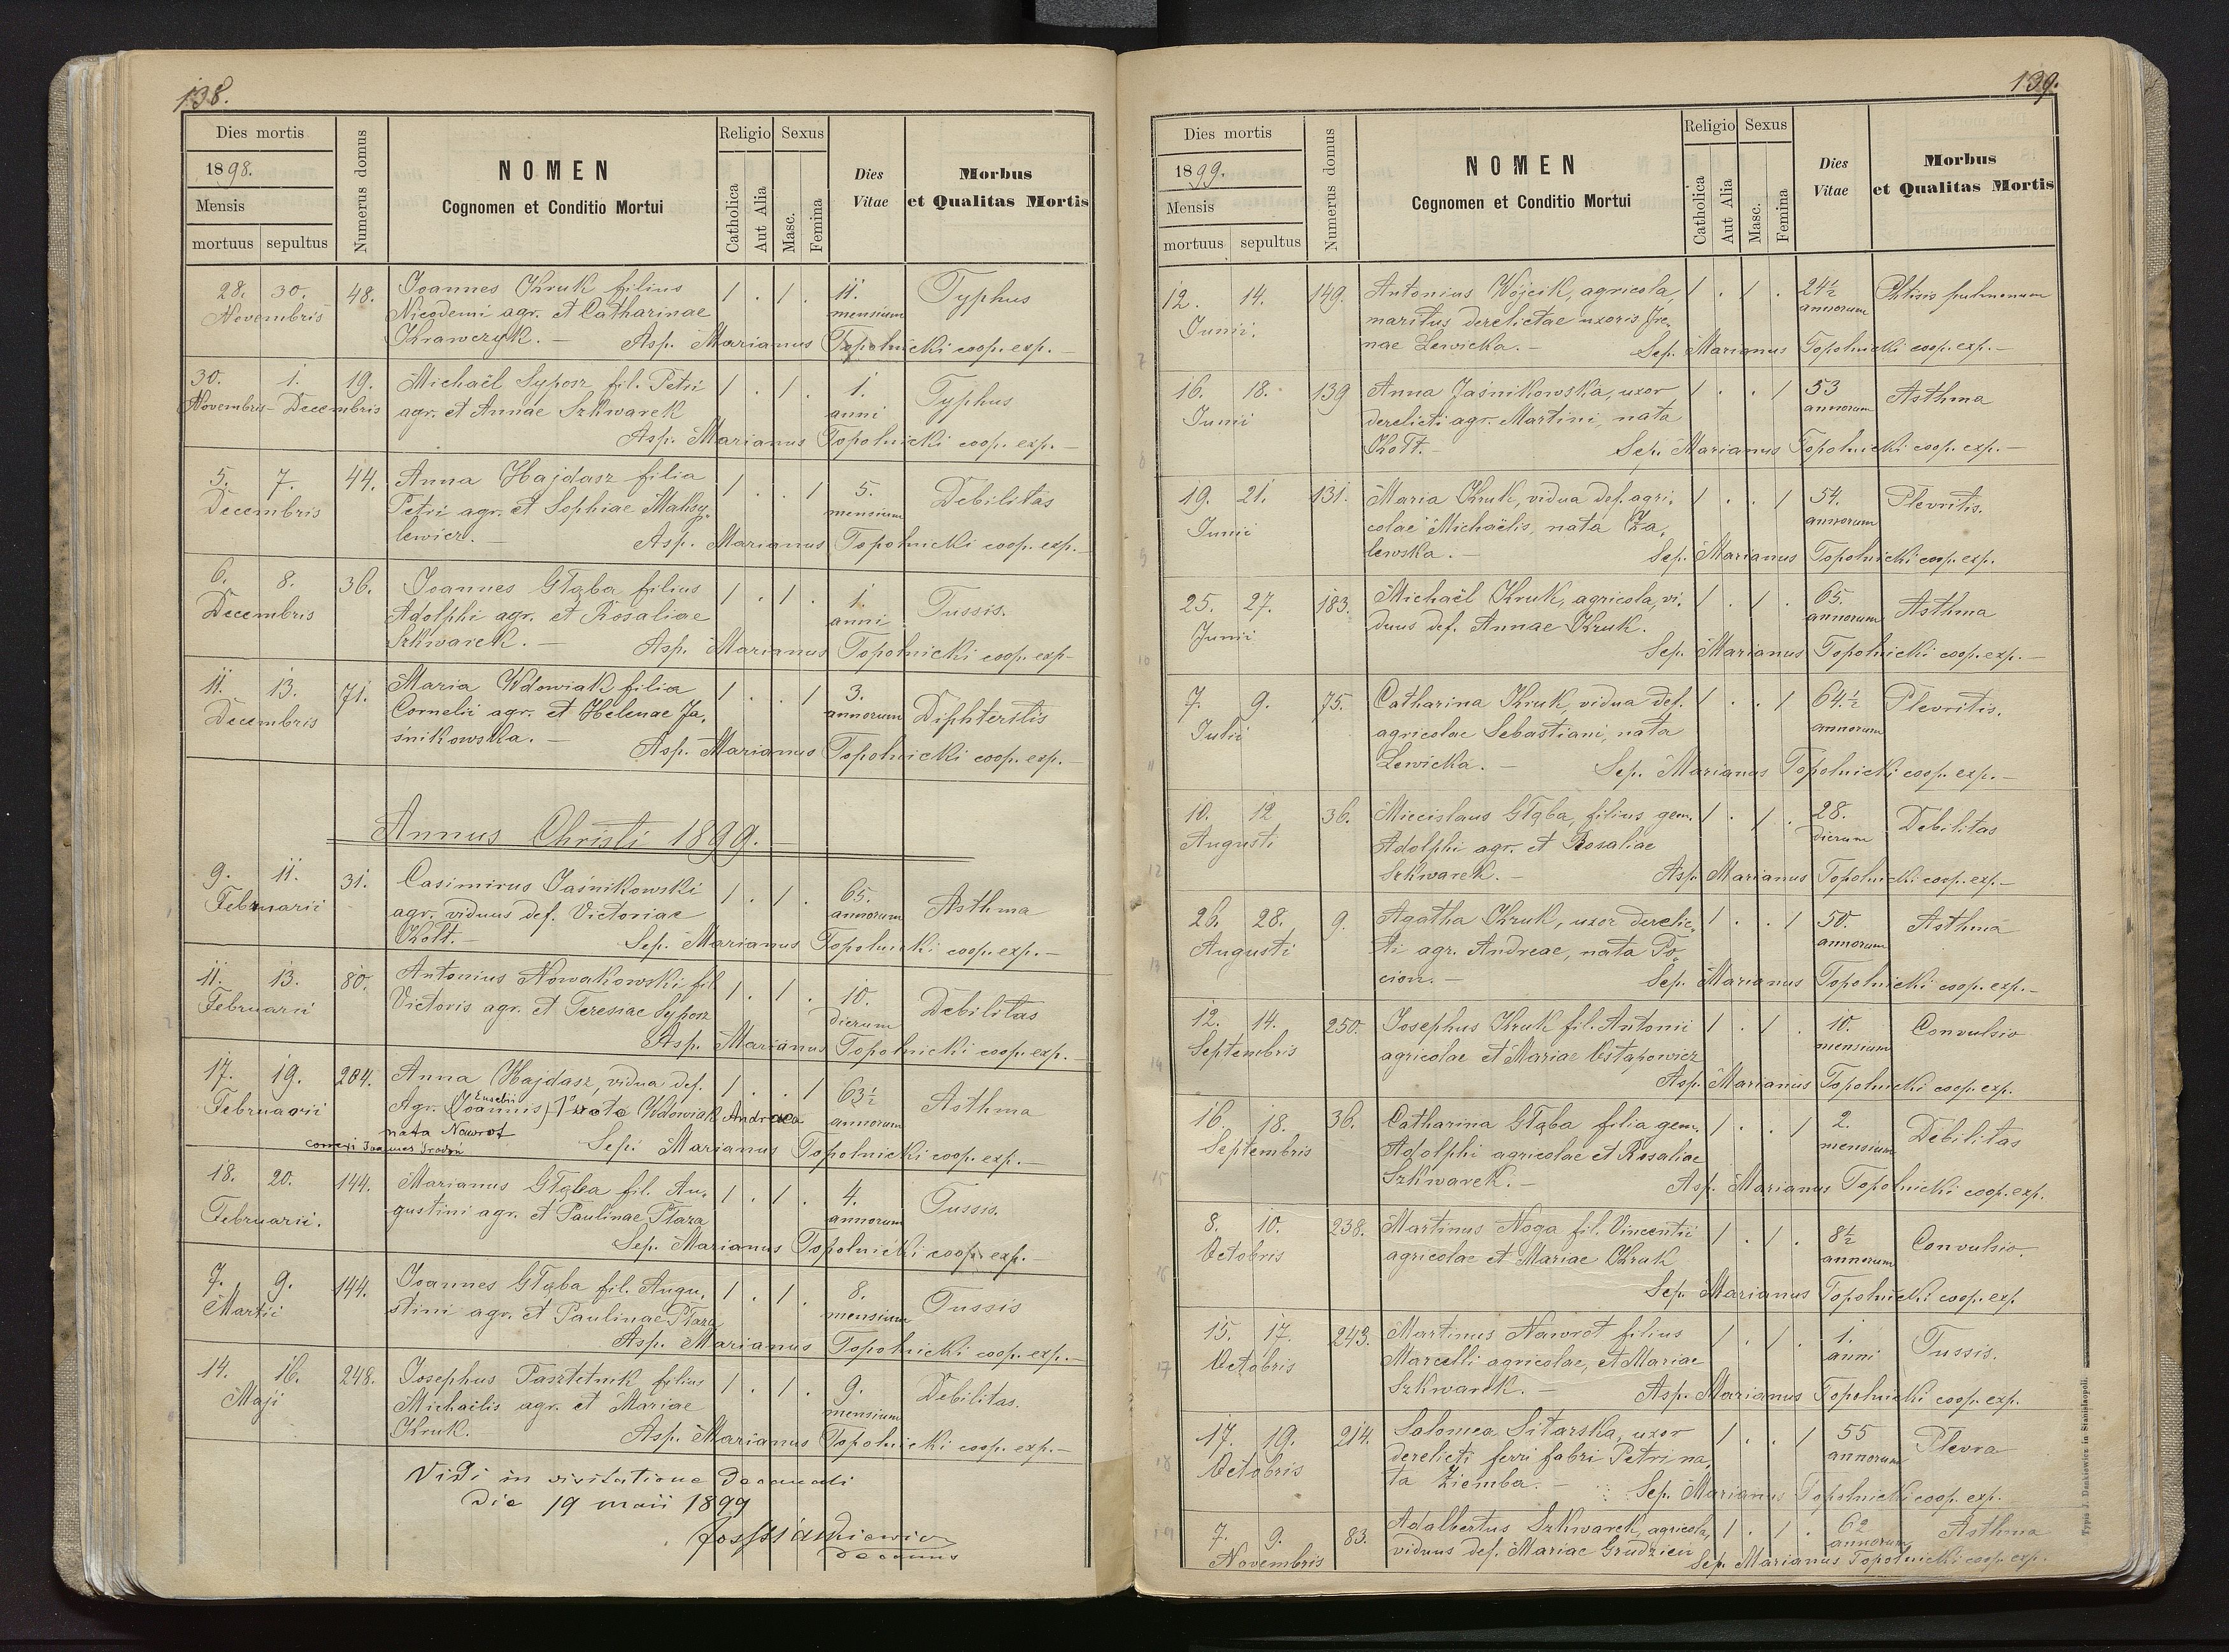 138.
Dies mortis
1898.
Mensis
mortuus sepultus
Numerus domus
NOMEN
Cognomen et Conditio Mortui
Religio Sexus
Catholica
Aut Alia
Masc.
Femina
Dies
Vitae
Morbus
et Qualitas Mortis
28. 30. 48. Joannes Kruk filius 1 . 1 . 11. Typhus
Novembris Nicodemi agr. et Catharinae mensium
Krawczyk. — Asp. Marianus Topolnicki coop. exp. —
30. 1. 19. Michaël Syposz fil. Petri 1 . 1 . 1. Typhus
Novembris - Decembris agr. et Annae Szkwarek anni
Asp. Marianus Topolnicki coop. exp. —
5. 7. 44. Anna Hajdasz filia 1 . . 1 5. Debilitas
Decembris Petri agr. et Sophiae Maksy- mensium
lewicz. — Asp. Marianus Topolnicki coop. exp. —
6. 8. 36. Joannes Głąba filius 1 . 1 . 1. Tussis.
Decembris Adolphi agr. et Rosaliae anni
Szkwarek. — Asp. Marianus Topolnicki coop. exp —
11. 13. 71. Maria Wdowiak filia 1 . . 1 3. Diphteritis
Decembris Cornelii agr. et Helenae Ja- annorum
śnikowska. — Asp. Marianus Topolnicki coop. exp. —
Annus Christi 1899. —
9. 11. 31. Casimirus Jaśnikowski 1 . 1 . 65. Asthma
1 Februarii agr. viduus def. Victoriae annorum
Kołt. — Sep. Marianus Topolnicki coop. exp. —
11. 13. 80. Antonius Nowakowski fil 1 . 1 . 10. Debilitas
2 Februarii Victoris agr. et Teresiae Syposz dierum
Asp. Marianus Topolnicki coop. exp. —
17. 19. 204. Anna Hajdasz, vidua def. 1 . . 1 63½ Asthma
Eusebii
Februarii Agr. (Joannis) 1° voto Wdowiak Andrea annorum
nata Nawrot
correxi Joannes Sep. Marianus Topolnicki coop. exp. —
18. 20. 144. Marianus Głąba fil. Au- 1 . 1 . 4. Tussis.
Februarii. gustini agr. et Paulinae Płaza annorum
Sep. Marianus Topolnicki coop. exp. —
7. 9. 144. Joannes Głąba fil. Augu- 1 . 1 . 8. Tussis
Martii stini agr. et Paulinae Płaza mensium
Asp. Marianus Topolnicki coop. exp. —
14. 16. 248. Josephus Pasztetnik filius 1 . 1 . 9. Debilitas.
Maji Michaëlis agr. et Mariae mensium
Kruk. Asp. Marianus Topolnicki coop. exp. —
Vidi in visitatione decanali
die 19 maii 1899
decanus
139.
Dies mortis
1899.
Mensis
mortuus sepultus
Numerus domus
NOMEN
Cognomen et Conditio Mortui
Religio Sexus
Catholica
Aut Alia
Masc.
Femina
Dies
Vitae
Morbus
et Qualitas Mortis
12. 14. 149. Antonius Wójcik, agricola, 1 . 1 . 24½ Phtisis pulmonum
Junii. maritus derelictae uxoris Ire- annorum
7 nae Lewicka. — Sep. Marianus Topolnicki coop. exp. —
16. 18. 139 Anna Jaśnikowska, uxor 1 . . 1 53 Asthma
Junii derelicti agr. Martini, nata annorum
8 Kołt. — Sep. Marianus Topolnicki coop. exp. —
19. 21. 131. Maria Kruk, vidua def. agri- 1 . . 1 54. Plevritis.
Junii colae Michaëlis, nata Za- annorum
9 lewska. — Sep. Marianus Topolnicki coop. exp.
25. 27. 183. Michaël Kruk, agricola, vi- 1 . 1 . 65. Asthma
Junii duus def. Annae Kruk. annorum
10 Sep. Marianus Topolnicki coop. exp. —
7. 9. 75. Catharina Kruk, vidua def. 1 . . 1 64.½ Plevritis.
Julii agricolae Sebastiani, nata annorum
11 Lewicka. — Sep. Marianus Topolnicki coop. exp. —
10. 12 36. Miecislaus Głąba, filius gem. 1 . 1 . 28. Debilitas
Augusti Adolphi agr. et Rosaliae dierum
12 Szkwarek. — Asp. Marianus Topolnicki coop. exp —
26. 28. 9. Agatha Kruk, uxor derelic- 1 . . 1 50. Asthma
Augusti ti agr. Andreae, nata Po- annorum
13 cion. — Sep. Marianus Topolnicki coop. exp. —
12. 14. 250. Josephus Kruk fil. Antonii 1 . 1 . 10. Convulsio
Septembris agricolae et Mariae Ostapowicz mensium
14 Asp. Marianus Topolnicki coop. exp.
16. 18. 36. Catharina Głąba filia gem. 1 . . 1 2. Debilitas
Septembris Adolphi agricolae et Rosaliae mensium
15 Szkwarek. — Asp. Marianus Topolnicki coop. exp.
8. 10. 238. Martinus Noga fil. Vincentii 1 . 1 . 8½ Convulsio.
Octobris agricolae et Mariae Kruk annorum
16 Sep. Marianus Topolnicki coop. exp
15. 17. 243. Martinus Nawrot filius 1 . 1 . 1. Tussis.
17 Octobris Marcelli agricolae, et Mariae anni
Szkwarek. — Asp. Marianus Topolnicki coop. exp.
17. 19. 214. Salomea Sitarska, uxor 1 . . 1 55 Plevra
18 Octobris derelicti ferri fabri Petri na- annorum
ta Ziemba. — Sep. Marianus Topolnicki coop. exp.
19 7. 9. 83. Adalbertus Szkwarek, agricola, 1 . 1 . 62 Asthma
Novembris viduus def. Mariae Grudzień annorum
Sep. Marianus Topolnicki coop. exp.
Typis J. Dankiewicz in Stanislaopoli.